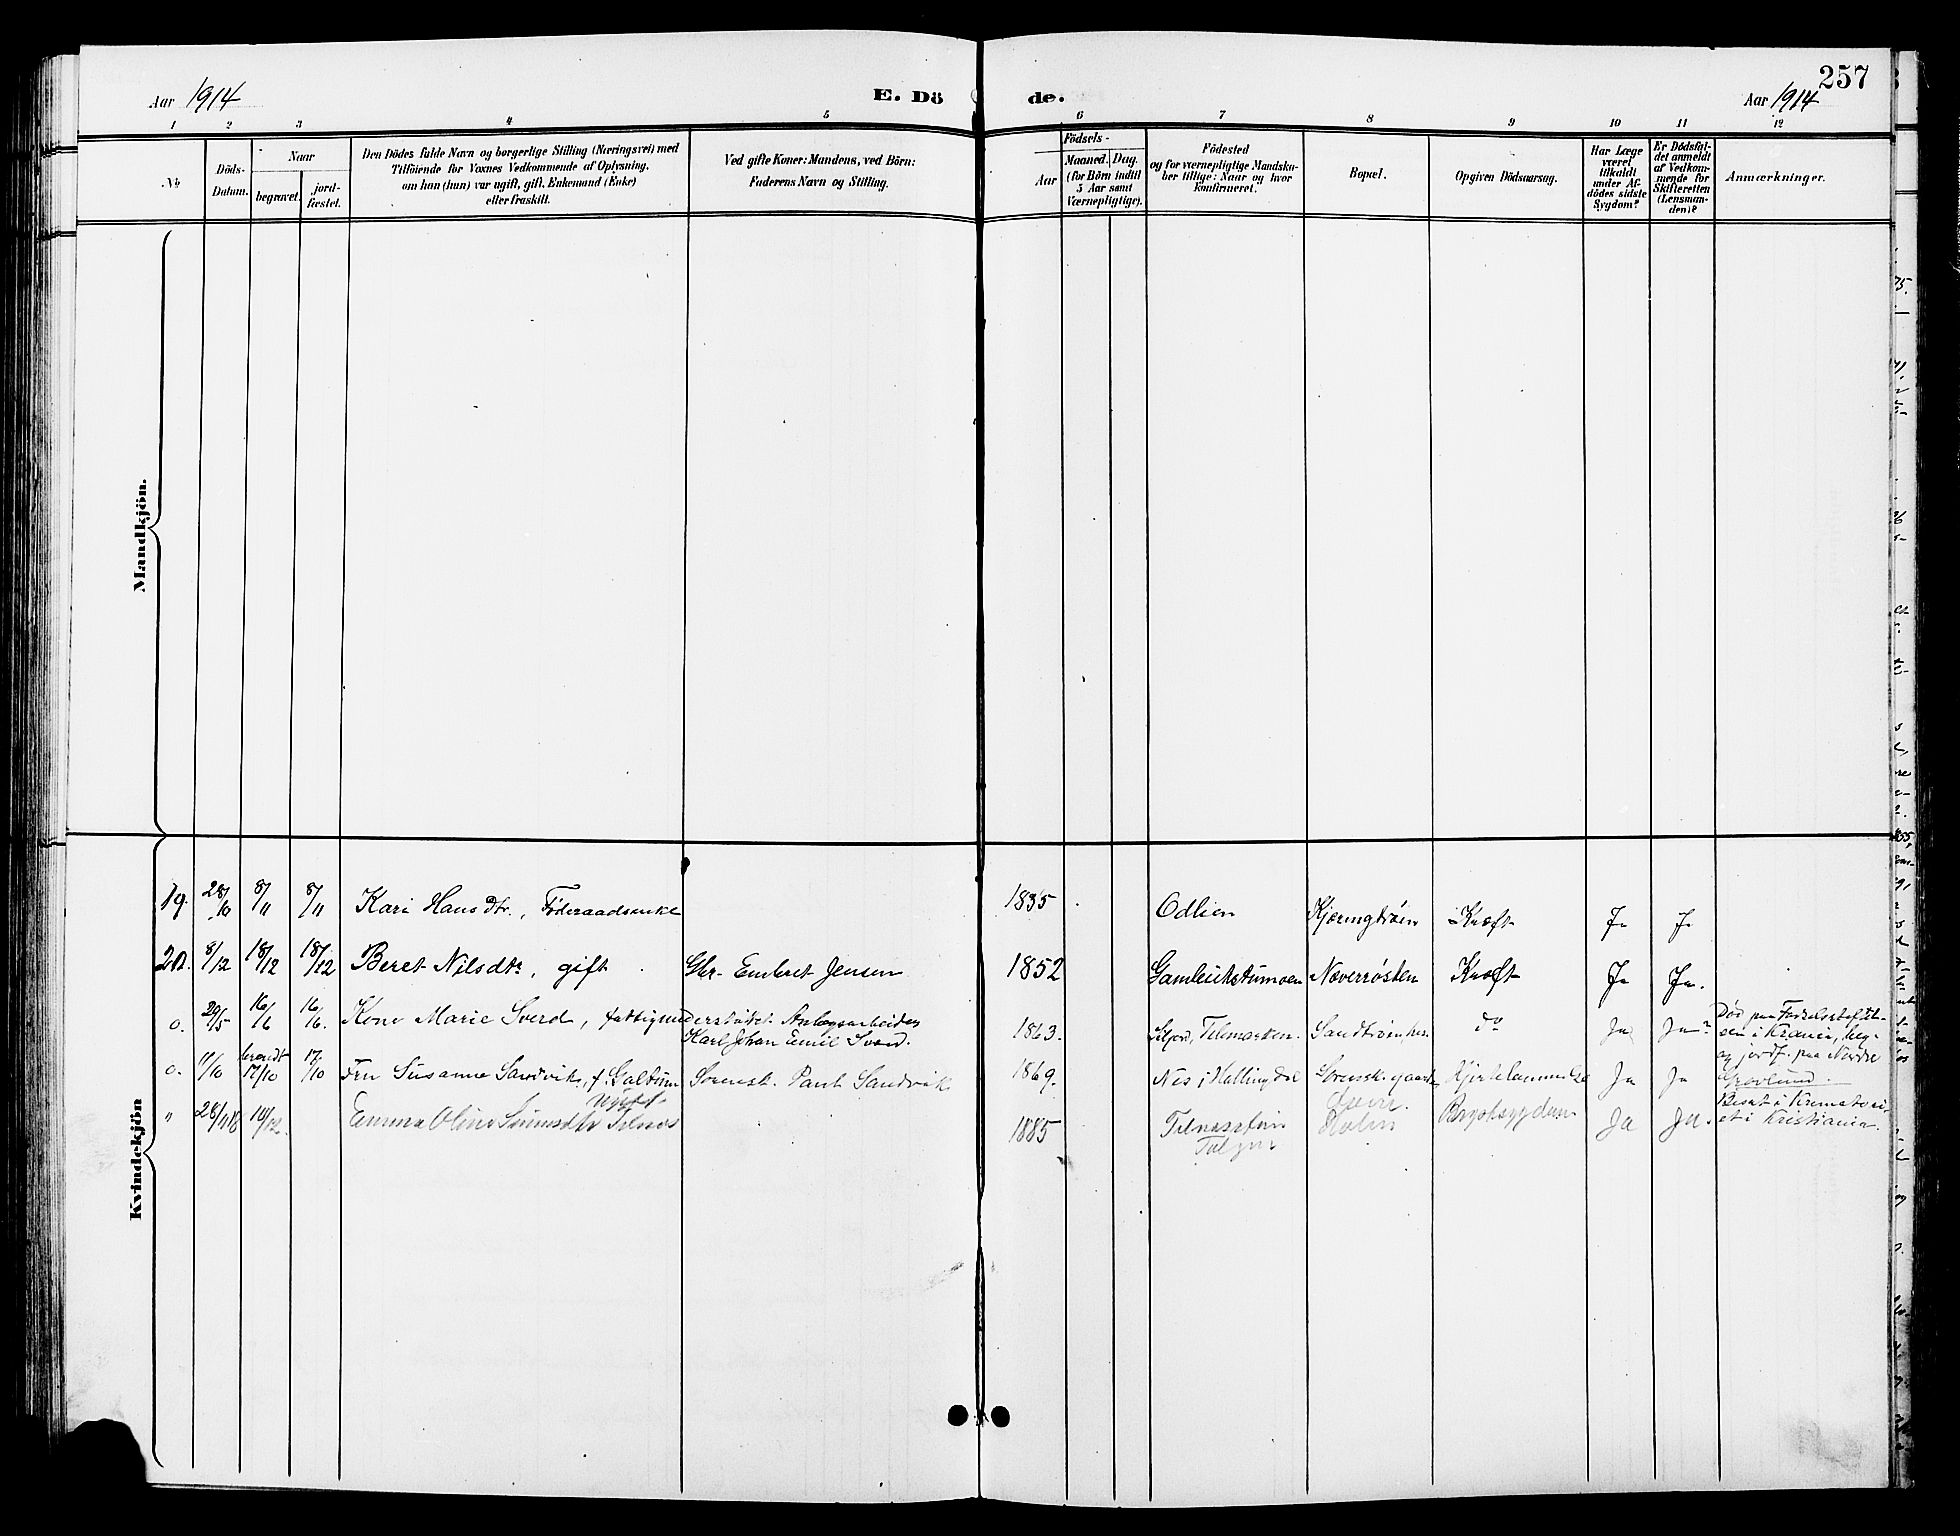 257
Aar 1914
E. Dö de.
Aar 1914
1 2 3 4 5 6 7 8 9 10 11 12
No.
Döds-Datum.
Naar
begravet.
jord-fæstet.
Den Dödes fulde Navn og borgerlige Stilling (Næringsvei) med
Tilföiende for Voxnes Vedkommende af Oplysning,
om han (hun) var ugift, gift, Enkemand (Enke)
eller fraskilt.
Ved gifte Koner: Mandens, ved Börn:
Faderens Navn og Stilling.
Födsels-
Aar
Maaned. Dag.
(for Börn indtil
5 Aar samt
Værnepligtige).
Födested
og for værnepligtige Mandska-
ber tillige: Naar og hvor
Konfirmeret.
Bopæl.
Opgiven Dödsaarsag.
Har Læge
været
tilkaldt
under Af-
dödes sidste
Sygdom?
Er Dödsfal-
det anmeldt
af Vedkom-
mende for
Skifteretten
(Lensman-
den)?
Anmærkninger.
Mandkjön.
Kvindekjön
19. 28/10 8/11 8/11 Kari Hansdtr., Föderaadsenke 1835 Odlien Kjæringtrøen Kræft Ja Ja
20. 8/12 18/12 18/12 Beret Nilsdtr, gift Gbr. Embret Jensen 1852 Næverrøsten Kræft Ja Ja.
o. 29/5 16/6 16/6. Kone Marie Sverd, fattigunderstøttet. Anlægsarbeider
Karl Johan Emil Sverd. 1863. Telemarken. do Ja Ja
Død paa
i Krania, beg.
og jordf. paa Nordre
Gravlund.
o. 11/10 brændt 17/10 17/10 Fru Susanne Sandvik, f. Galtung Sorensk. Paul Sandvik 1869. Nes i Hallingdal Sorensk.gaarden Ja Ja
Besat i Krematori-
et i Kristiania.
" 28/11 18 10/12. ugift
Emma Oline 1885 Tolgen Holm Brystsygdom Ja Ja.